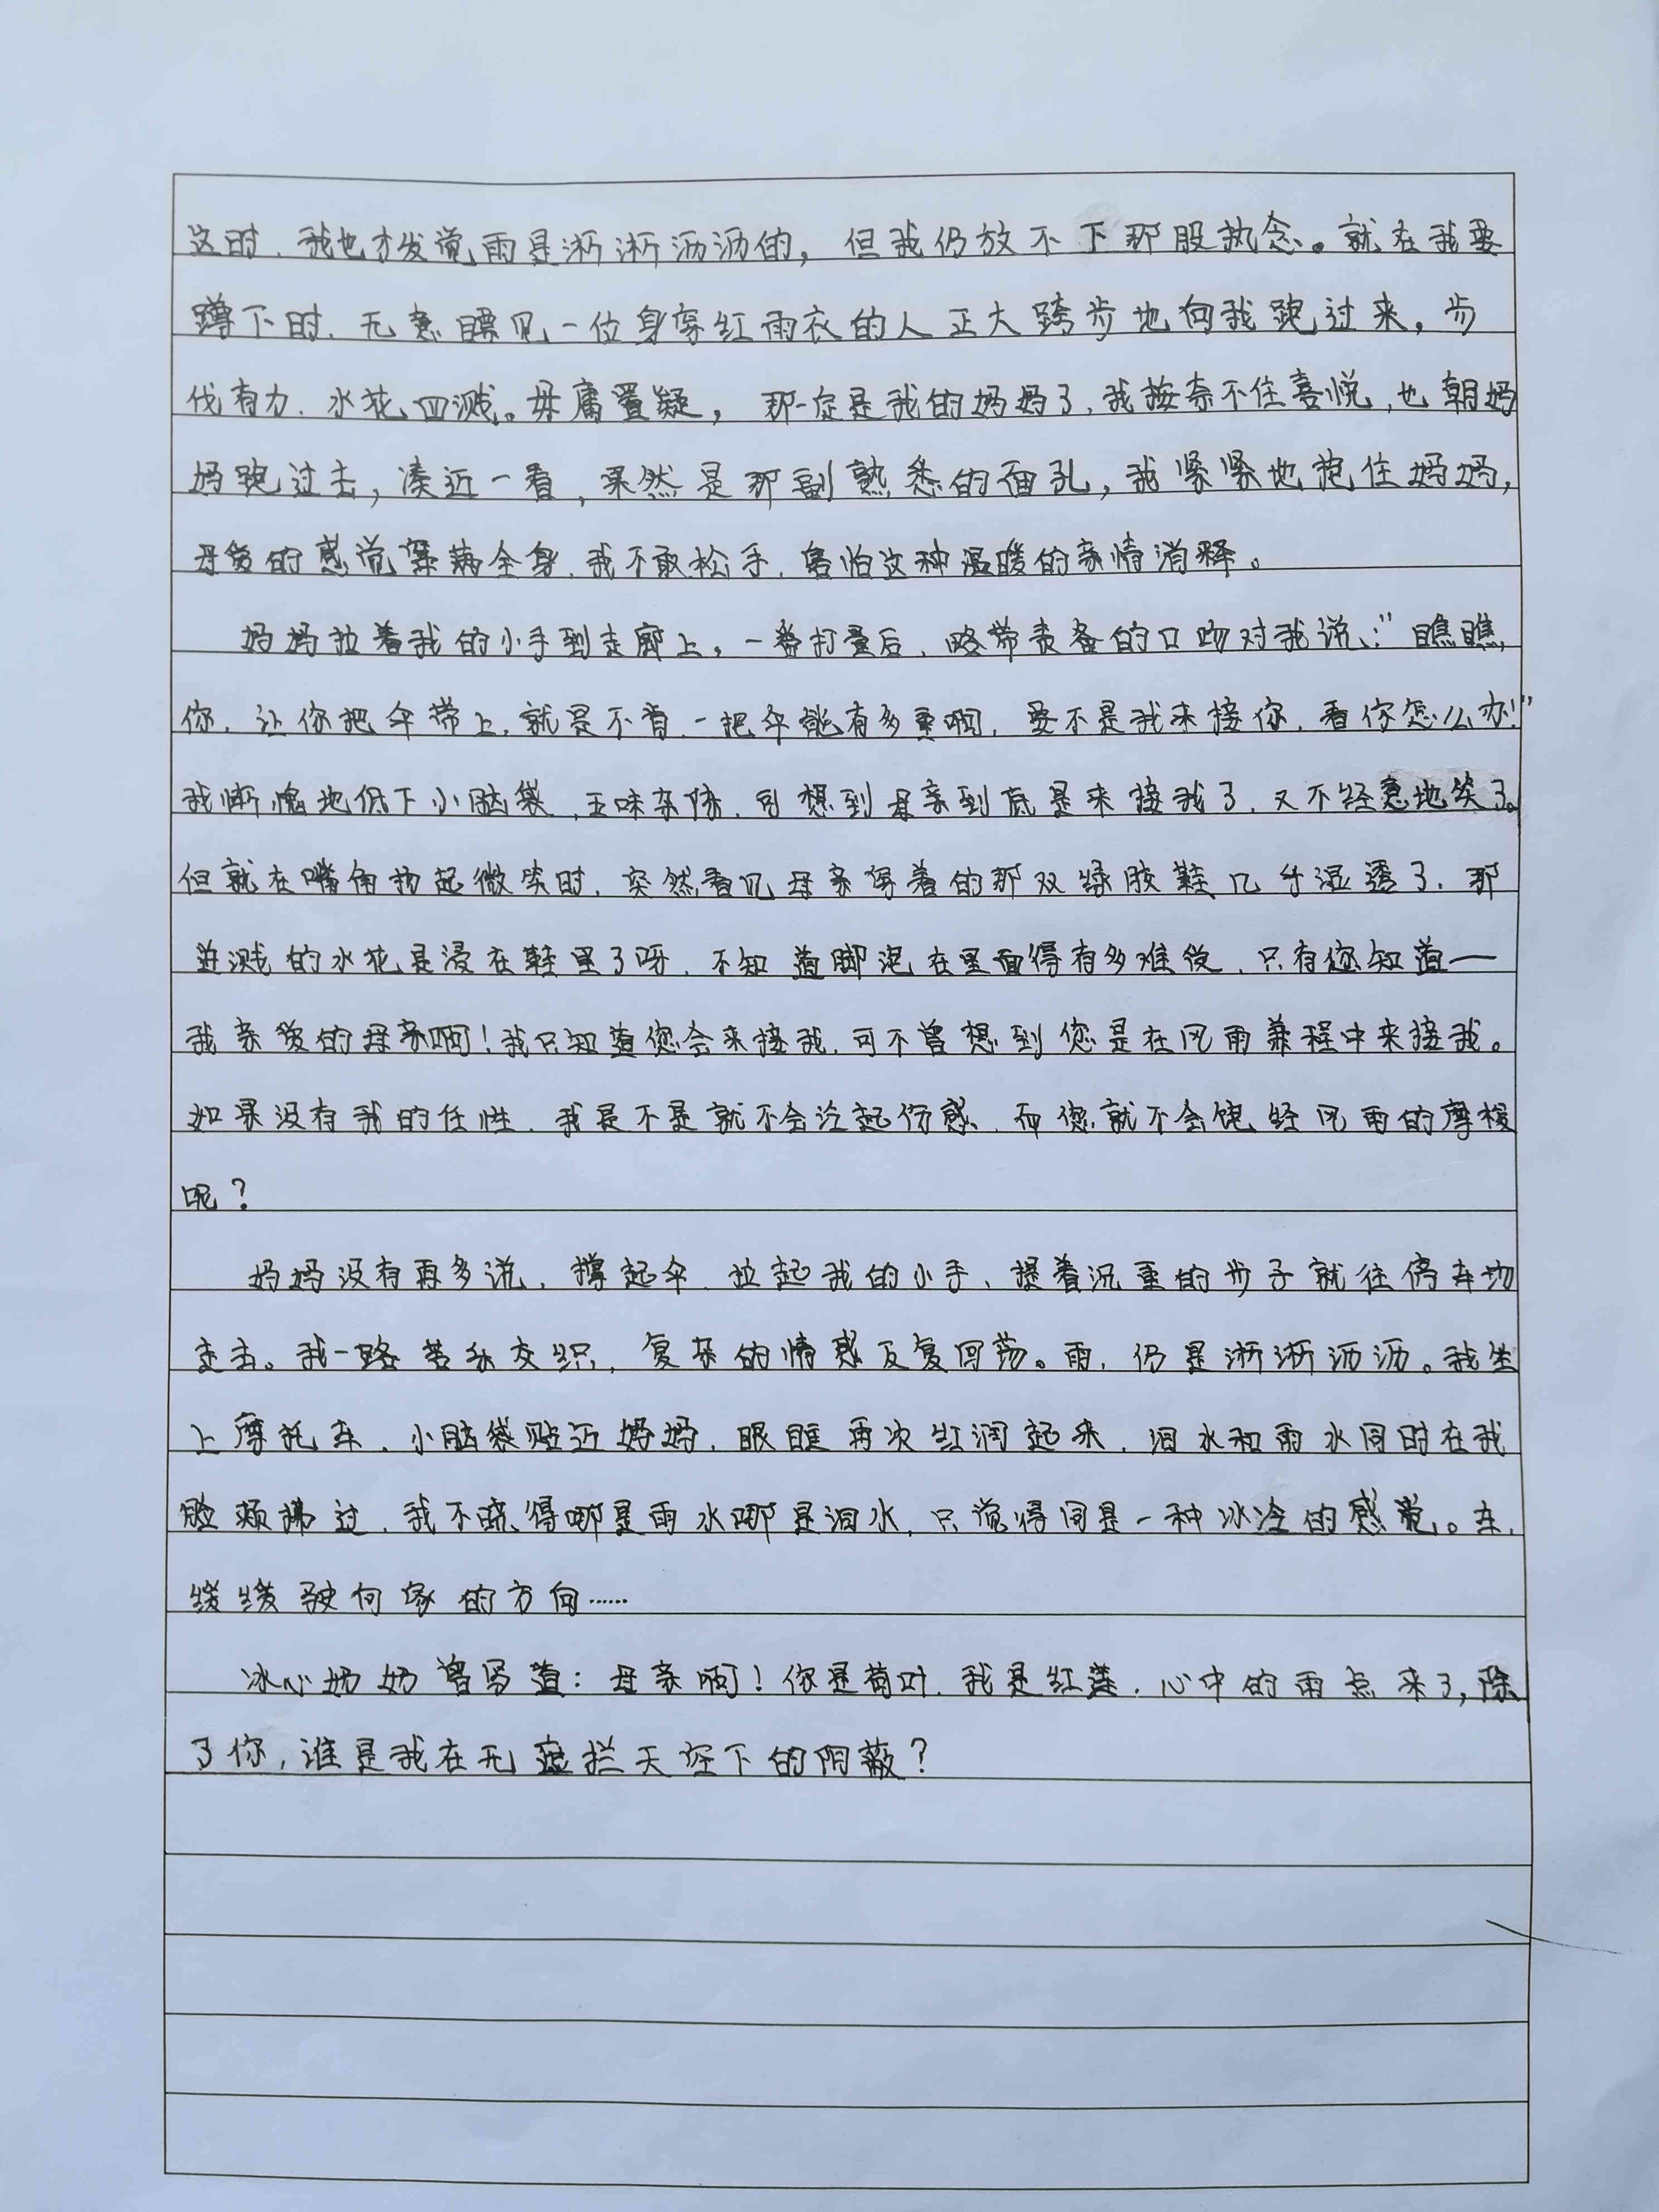 这时，我也才发觉雨是淅淅沥沥的，但我仍放不下那股执念。就在我要
蹲下时，无意瞟见一位身穿红雨衣的人正大跨步地向我跑过来，步
伐有力，水花四溅。毋庸置疑，那一定是我的妈妈了，我按奈不住喜悦，也朝妈
妈跑过去，凑近一看，果然是那副熟悉的面孔，我紧紧地抱住妈妈，
母爱的感觉萦满全身，我不敢松手，害怕这种温暖的亲情消释。
妈妈拉着我的小手到走廊上。一番打量后，略带责备的口吻对我说：“瞧瞧
你，让你把伞带上，就是不肯，一把伞能有多重啊，要不是我来接你，看你怎么办！”
我惭愧地低下小脑袋，五味杂陈，可想到母亲到底是来接我了，又不经意地笑了。
但就在嘴角扬起微笑时，突然看见母亲穿着的那双绿胶鞋几乎湿透了，那
迸溅的水花是浸在鞋里了呀，不知道脚泡在里面得有多难受，只有您知道—
我亲爱的母亲啊！我只知道您会来接我，可不曾想到您是在风雨兼程中来接我。
如果没有我的任性，我是不是就不会泛起伤感，而您就不会饱经风雨的摩梭
呢？
妈妈没有再多说，撑起伞，拉起我的小手，提着沉重的步子就往停车场
走去。我一路苦乐交织，复杂的情感反复回荡。雨，仍是淅淅沥沥。我坐
上摩托车，小脑袋贴近妈妈，眼眶再次红润起来，泪水和雨水同时在我
脸颊拂过，我不晓得哪是雨水哪是泪水，只觉得同是一种冰冷的感觉。车，
缓缓驶向家的方向……
冰心奶奶曾写道：母亲啊！你是荷叶，我是红莲，心中的雨点来了，除
了你，谁是我在无遮拦天空下的阴蔽？